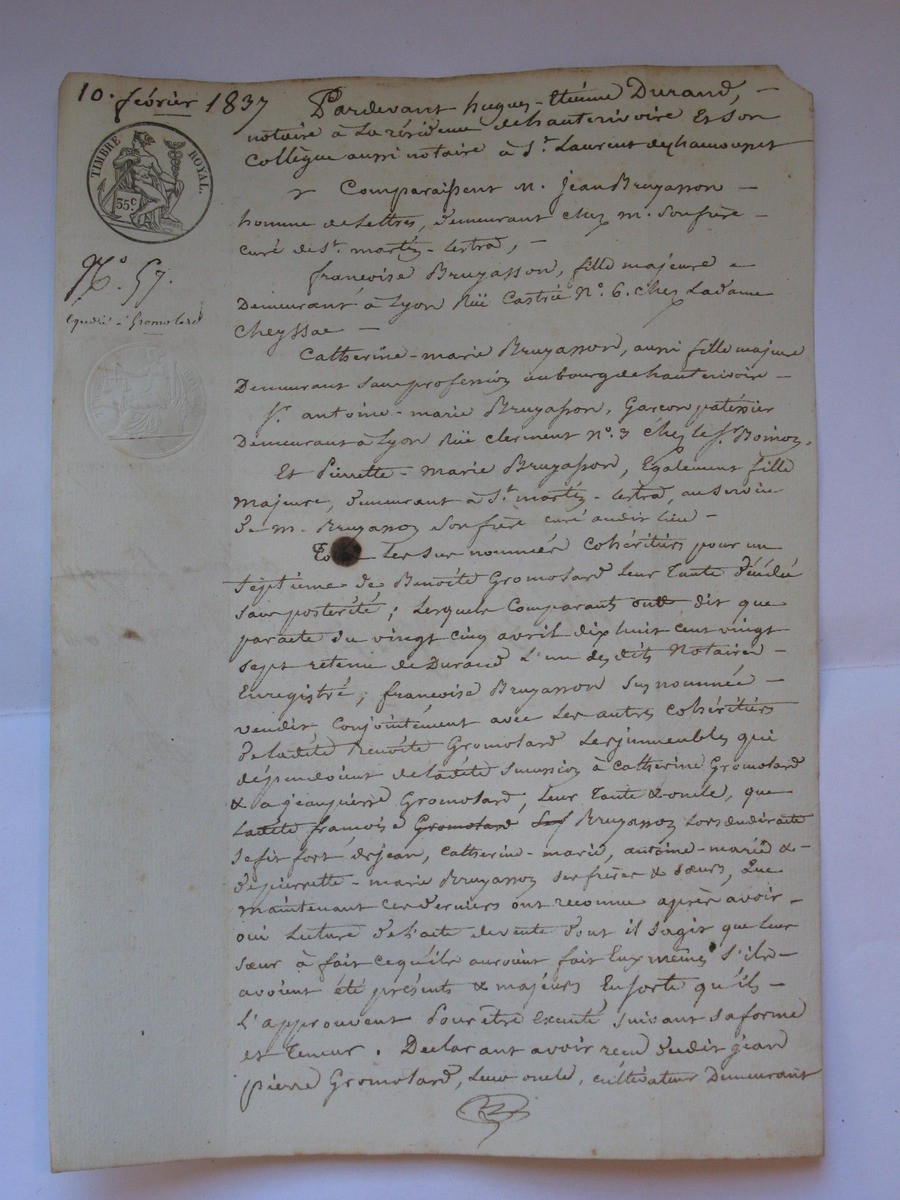 10. février 1837
Pardevant hugues-Etiénne Durand, –
notaire à La résidence de hauterivoire Et son
Collègue aussi notaire à St. Laurent de chamousset
TIMBRE ROYAL.
35c
Comparaissent M. Jean Bruyasson –
homme de Lettres, Demeurant chez m. son frère –
curé de St. martin-lestra, –
No. 57.
françoise Bruyasson, fille majeure
Demeurant à Lyon Rüe Castrie No. 6. chez Ladame
Expédié à Gromolard
Cheyssac –
Catherine-marie Bruyasson, aussi fille majeure
Demeurant sans profession au bourg de hauterivoir –
Sr. antoine-marie Bruyasson, Garçon patissier
Demeurant à Lyon Rüe clermont no. 3 chez le Sr.
Et Pierrette-Marie Bruyasson, Egalement fille
Majeure, demeurant à St. martin-lestra, au Service
de m. Bruyasson Son frère curé audit lieu –
Les sus nommés cohéritiers pour un
Septième de Benoîte Gromolard Leur Tante décédée
Sans postérité; Lesquels Comparants ont dit que
par acte du vingt cinq avril dix huit cent vingt
sept retenu de Durand L'un des dits Notaires –
Enregistré, françoise Bruyasson Susnommée –
vendit Conjointement avec Les autres Cohéritiers
de ladite Benoîte Gromolard Les immeubles qui
dépendoient de ladite Succession à Catherine Gromolard
& a jean pierre Gromolard, leur Tante & oncle, que
Ladite françoise Gromolard Bruyasson Lors dudit acte
se fit fort de jean, Catherine-marie, antoine-marie &
de pierrette-marie Bruyasson ses frères & sœurs, Que
maintenant Ces derniers ont reconnu après avoir –
oui Lecture de l'acte de vente dont il S'agit que Leur
sœur à fait ce qu'ils auroient fait Eux mêmes S'ils –
avoient été présents & majeurs En sorte qu'ils –
L'approuvent Pour être Exécuté Suivant sa forme
et Teneur. Déclarant avoir reçu dudit jean
pierre Gromolard, Leur oncle, cultivateur Demeurant